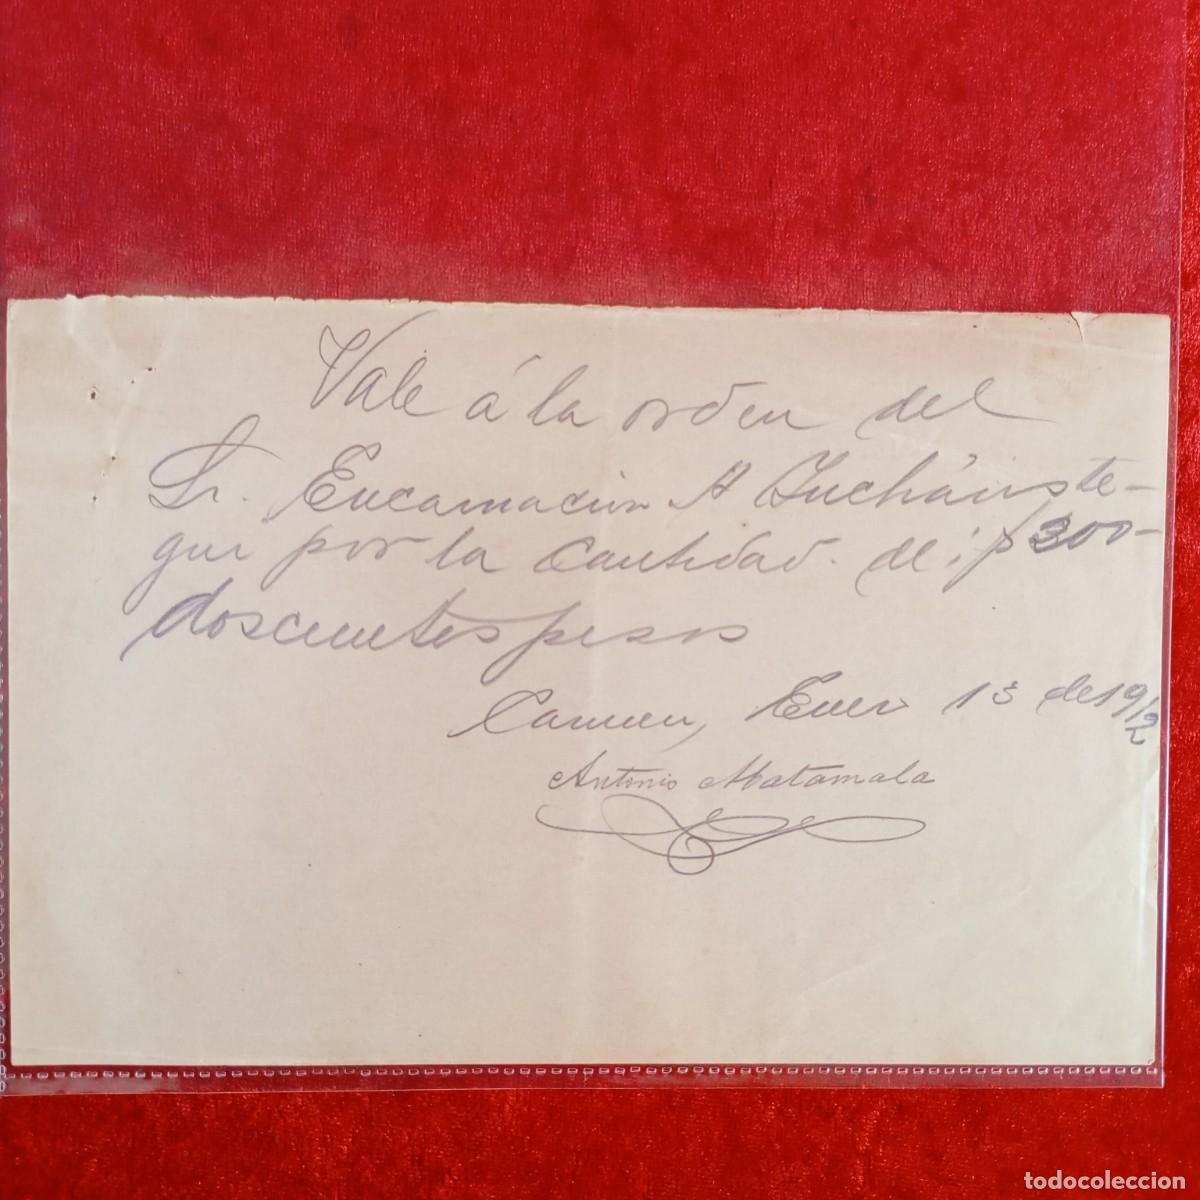 Vale á la orden del
Sr. Encarnacion A Incháuste-
gui por la cantidad. de: $ 200-
doscientos pesos
Carmen, Enero 13 de 1912
Antonio Matamala
todocoleccion